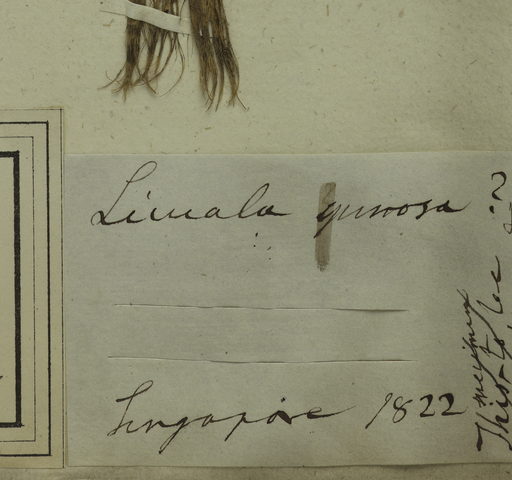 Licuala spinosa
Singapore 1822
This to be ?